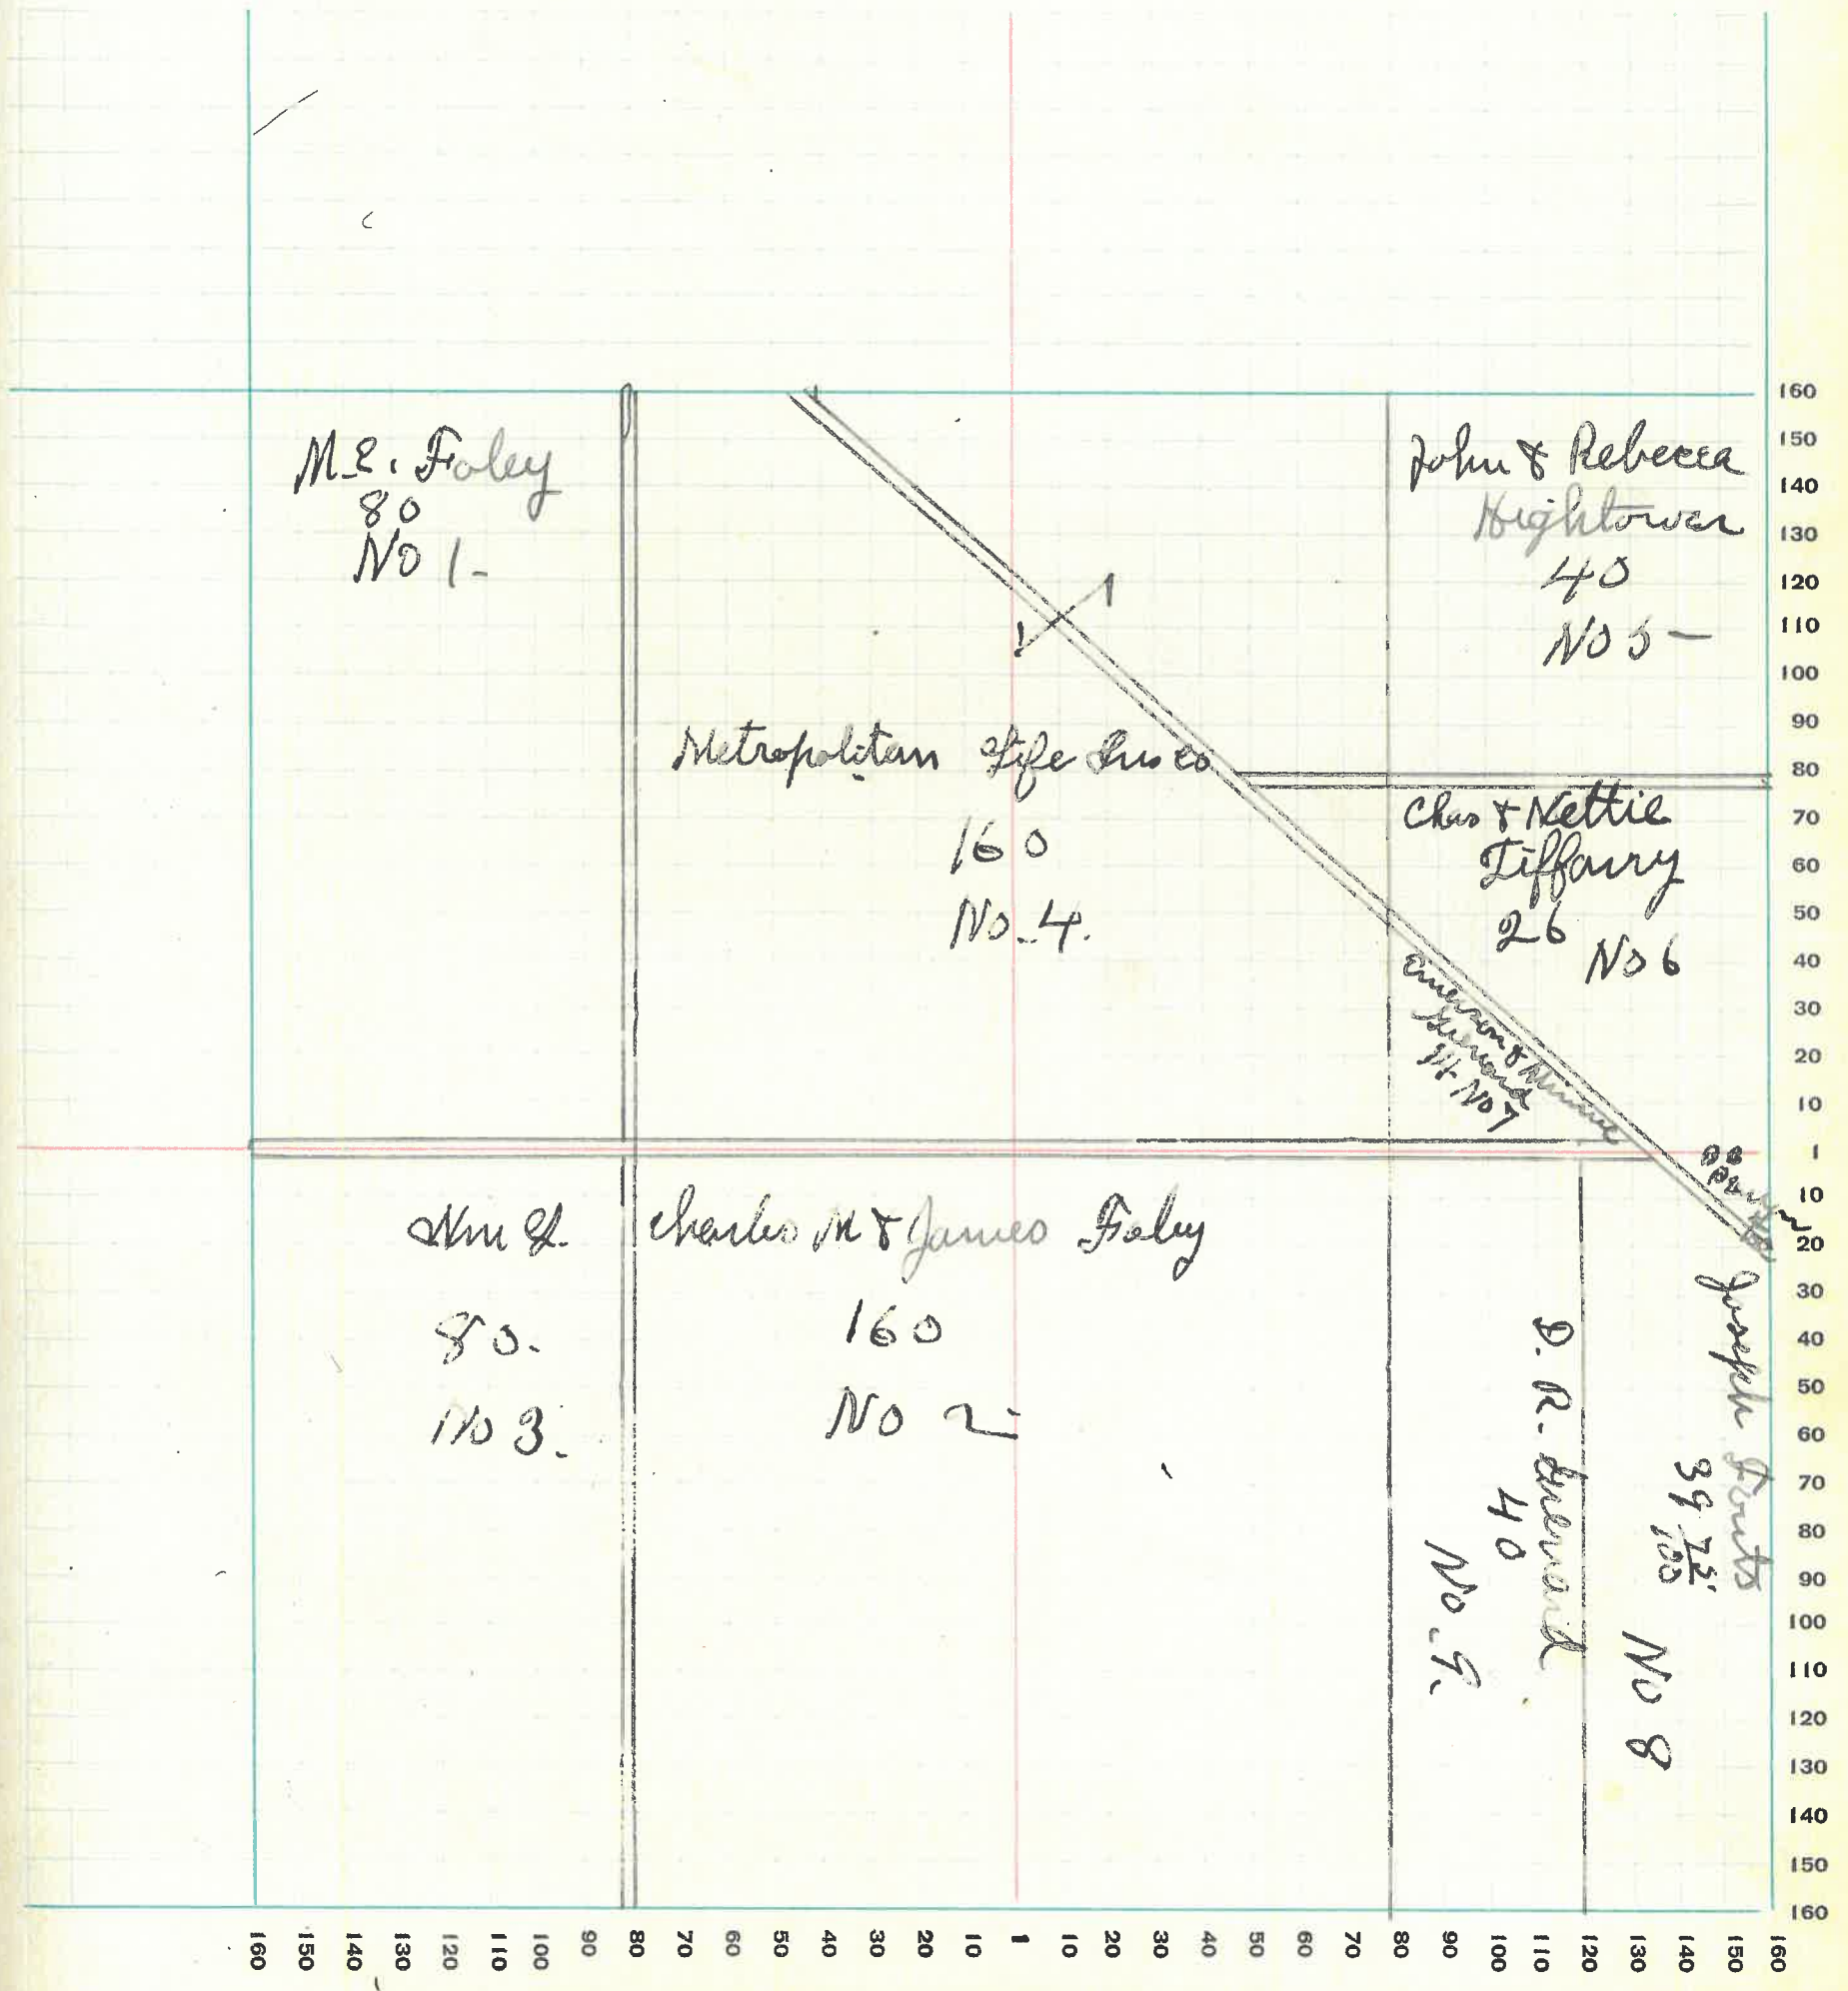 M.E. Foley
80
No 1-
John & Rebecca
Hightower
40
No 5 -
Metropolitan Life Ins co
160
No. 4.
Chas & Nettie
Tiffany
26
No 6
Emerson & Minnie
14 No 7
Wm L.
80.
No 3.
Charles M & James Foley
160
No 2
D. R.
40
No. 9.
Joseph Fouts
39 75/100
No 8
160
150
140
130
120
110
100
90
80
70
60
50
40
30
20
10
1
10
20
30
40
50
60
70
80
90
100
110
120
130
140
150
160
160 150 140 130 120 110 100 90 80 70 60 50 40 30 20 10 1 10 20 30 40 50 60 70 80 90 100 110 120 130 140 150 160